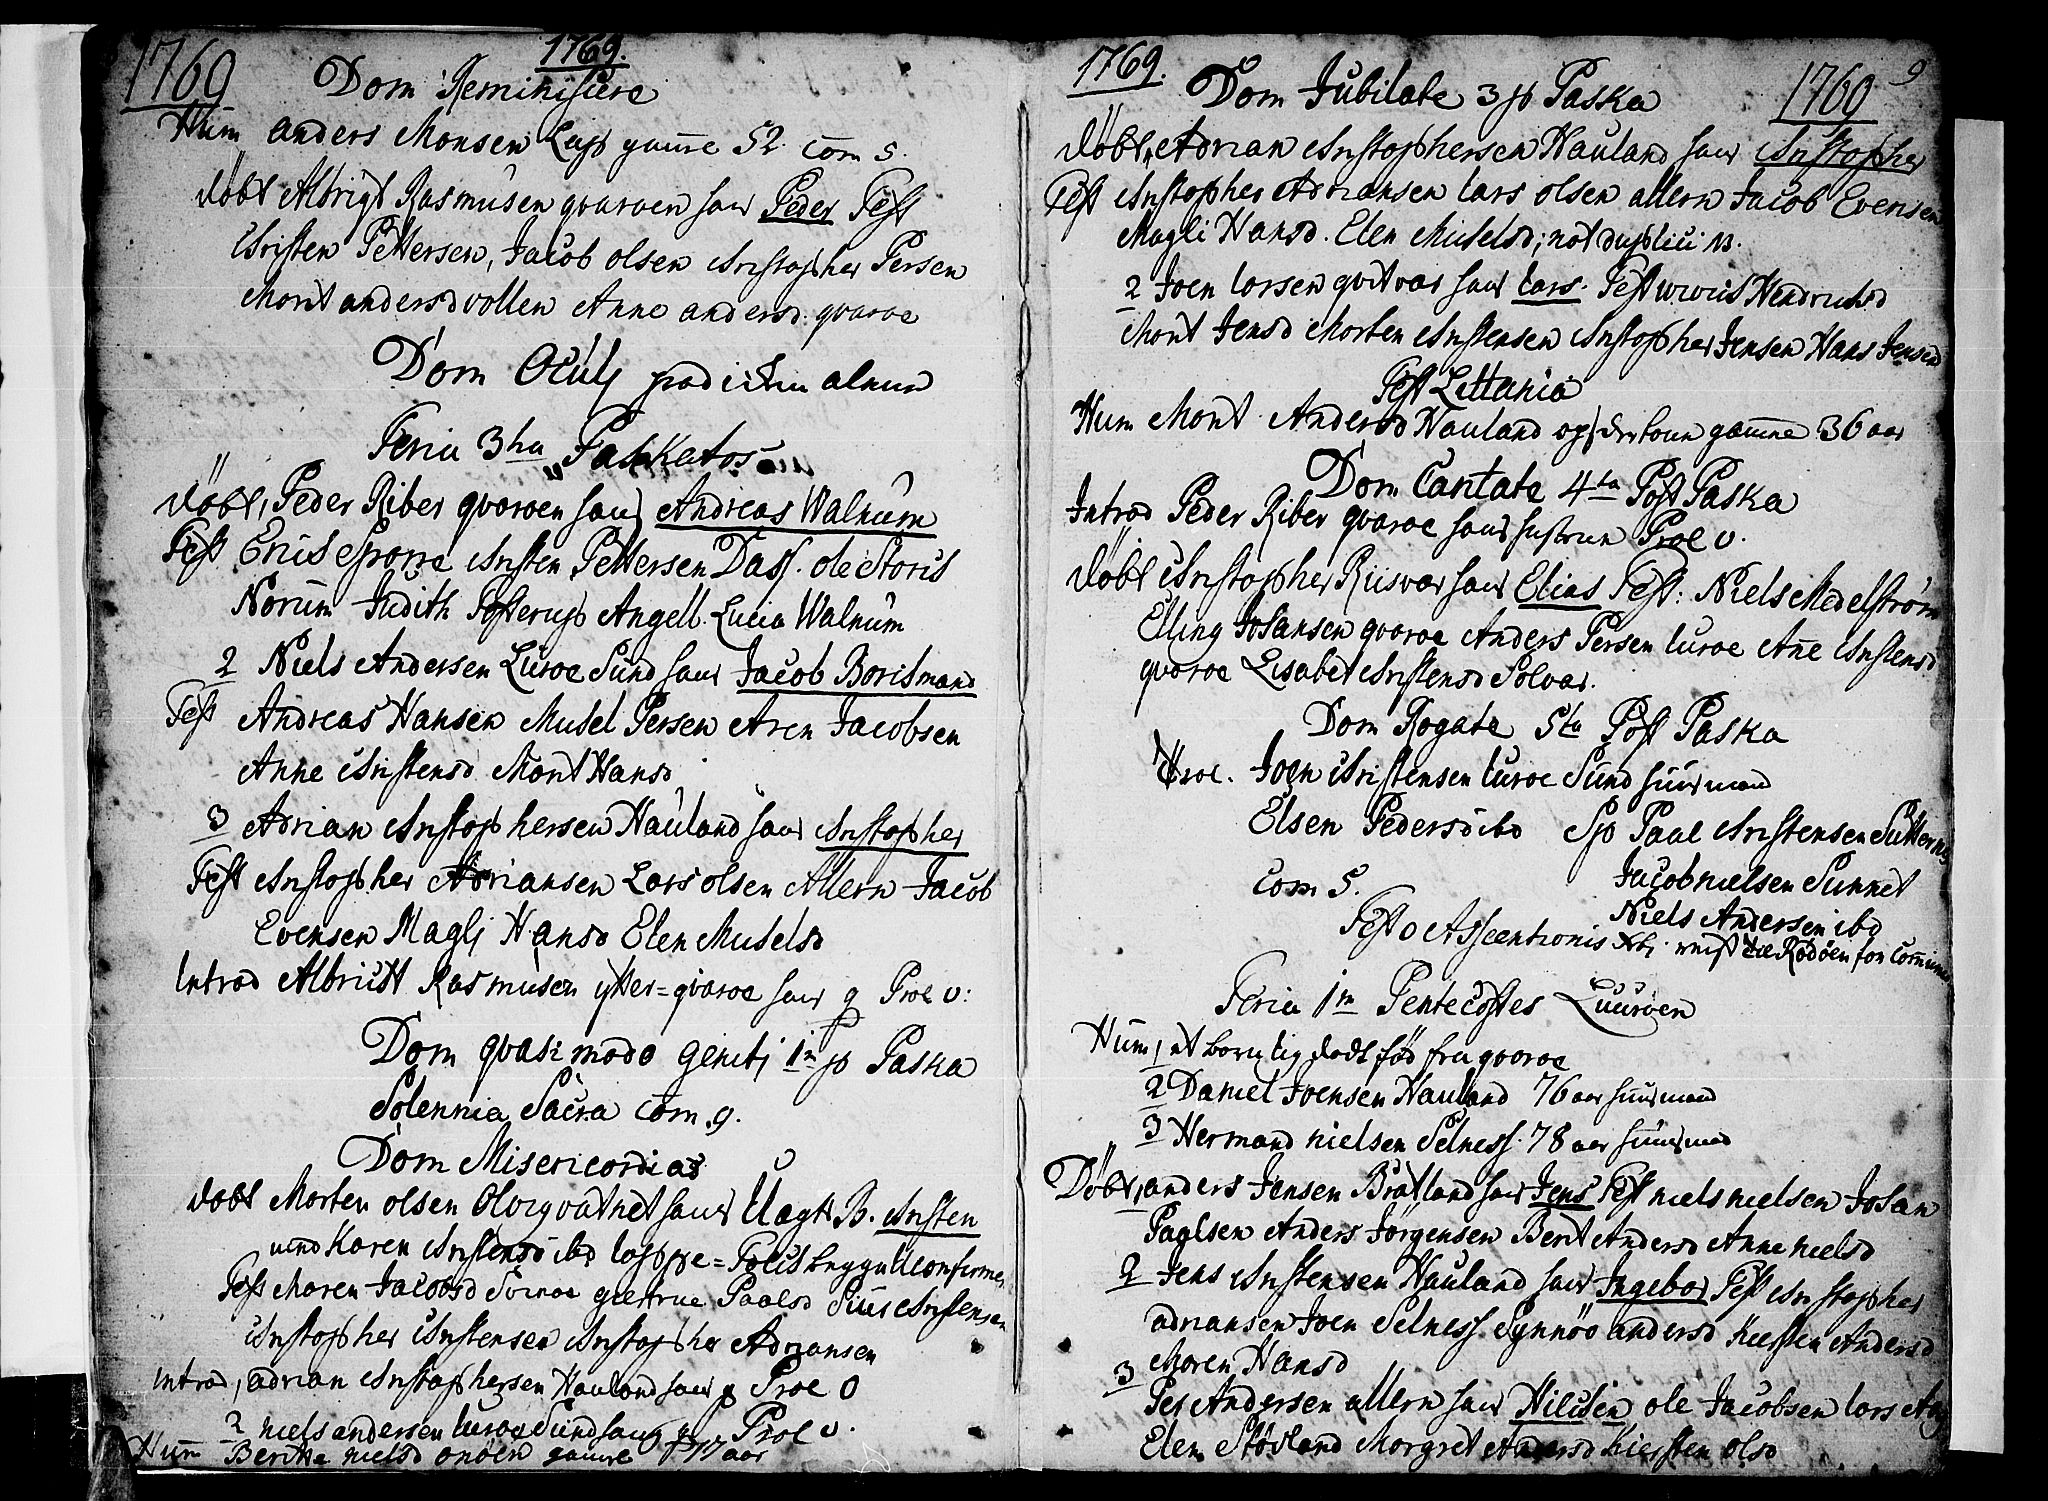 1769
1769.
Dom Reminisere
Hum anders Monsen gamre 52. Com 5.
Döbt Albrigt Rasmusen qvaroen saur Peder Test
Christen Pettersen, Jacob olsen Christopher Persen
Marit andersd vollen Anne andersd qvaroe
Dom Oculj
Feria 3tia Paskatos
Döbt 1 Peder Riber qvaroen saur Andreas Walnum
Test Christen Pettersen Dass. ole Storis
Norum Judith Angell. Lucia Walnum
2 Niels Andersen Luroe Sund saur Jacob Borismand
Test Andreas Hansen Mikel Persen Aren Jacobsen
Anne Christensd Marit Hansd
3 Adrian Christophersen Hauland saur Christopher
Test Christopher Adriansen Lars olsen Allern Jacob
Evensen Maglj Hansd Elen Mikelsd
Introd Albrict Rasmusen ytter=qvaroe saur q Prol v:
Dom qvasimodo genitj 1m p Paska
Solennia Sacra Com. 9.
Dom Misericordias
Döbt Morten olsen saur Uagt B. Christen
med Karen Christensd ibd
Test Maren Jacobsd Paalsd Christensen
Christopher Christensen Christopher Adriansen
Introd 1 adrian Christophersen Hauland saur q Prol v
2 niels andersen Luroe Sund saur q Prol v.
Hum Berithe nielsd onöen gamre 77 aar
1769.
1769 9
Dom Jubilate 3 p Paska
Döbt 1 Adrian Christophersen Hauland saur Christopher
Test Christopher Adriansen Lars olsen allern Jacob Evensen
Magli Hansd. Elen Mikelsd; not duplici
2 Joen Larsen saur Lars. Test Hendricksd
Marit Jensd Morten Christensen Christopher Jensen Hans Jensen
Fest Lettania
Hum Marit Andersd Hauland gamne 36 aar
Dom Cantate 4ta Post Paska
Introd Peder Riber qvaroe saur hustrue Prol v.
Döbt Christopher Riisvar saur Elias Test: Niels Medelström
Elling Johansen qvaroe Anders Persen Luroe Anne Christensd
qvaroe Lisabet Christensd Solvar.
Dom Rogate 5ta Post Paska
Trol. Joen Christensen Luroe Sund huusmand
Elsen Pedersd ibd Sp Paul Christensen
Com 5. Jacob nielsen Sunnet
Niels Andersen ibd
Festo Ascentionis til Rödöen for
Feria 1m Pentecostes Luuroen
Hum 1 et död fød fra qvaroe
2 Daniel Joensen Hauland 76 aar huusmand
3 Hermand nielsen Selness. 78 aar huusmand
Döbt 1 anders Jensen Bratland saur Jens Test niels nielsen Johan
Paalsen Anders Jörgensen Berit Andersd Anne nielsd
2 Jens Christensen Hauland saur Ingebor Test Christopher
adriansen Joen Selness Synnöe andersd Kiersten Andersd
Maren Hansd
3 Per Andersen allern saur Hilcken ole Jacobsen Lars
Elen Stösland Morgret Andersd Kiersten olsd